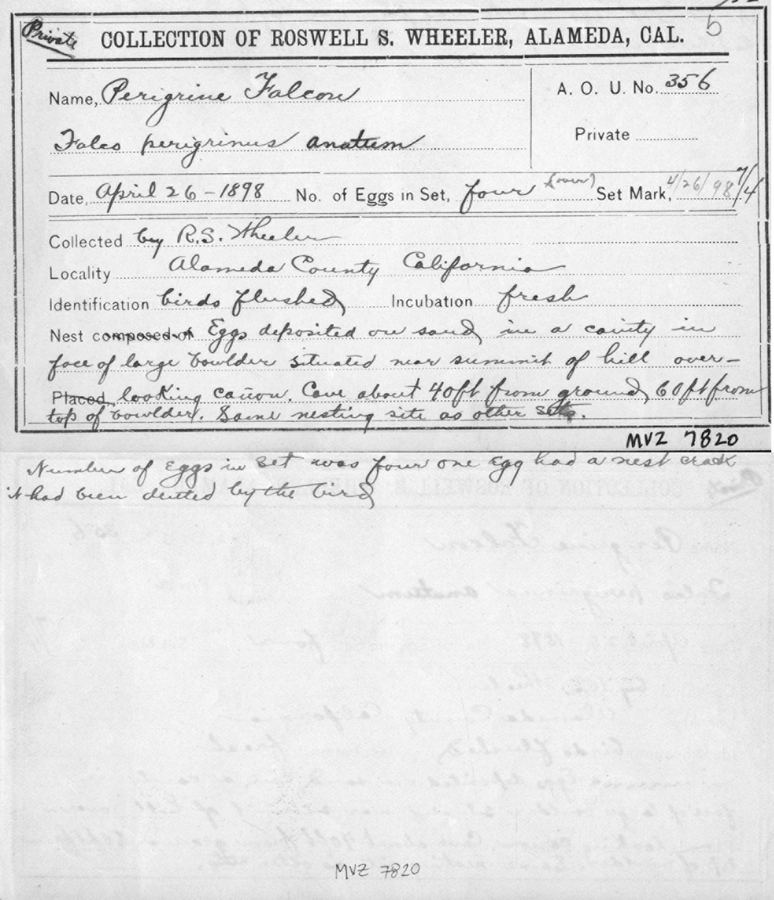 Private
COLLECTION OF ROSWELL S. WHEELER, ALAMEDA, CAL. 5
Name, Perigrine Falcon A. O. U. No. 356
Falco perigrinus anatum Private
Date, April 26 - 1898 No. of Eggs in Set, four (over) Set Mark, 4/26/98 7/4
Collected by R.S. Wheeler
Locality Alameda County California
Identification birds flushed Incubation fresh
Nest composed of Eggs deposited on sand in a cavity in
face of large bowlder situated near summit of hill over-
Placed, looking cañon. Cave about 40ft from ground, 60ft from
top of bowlder. Same nesting site as other sets.
MVZ 7820
Number of Eggs in set was four one egg had a nest crack
it had been dented by the bird
MVZ 7820